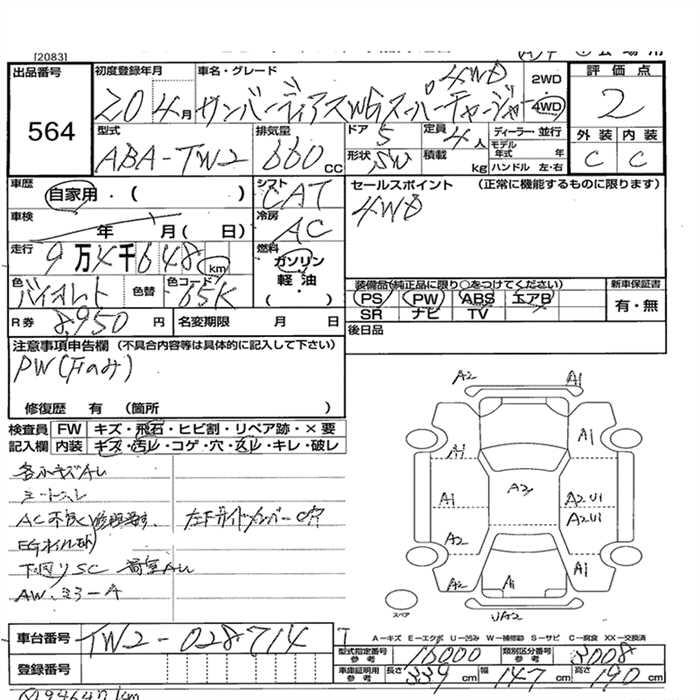 [2083]
出品番号 初度登録年月 車名・グレード 4WD 2WD 4WD 評価点
564 20 4月 サンバーディアスWGスーパーチャージャー 2
型式 排気量 ドア 5 定員 4人 ディーラー・並行 外装 内装
ABA-TW2 660 CC 形状 SW 積載 kg モデル年式 年 ハンドル 左・右 C C
車歴 自家用・( ) シフト CAT セールスポイント (正常に機能するものに限ります)
車検 年 月( 日) 冷房 AC 4WD
走行 9万4千648 km 燃料 ガソリン 軽油 ( ・ )
色 バイオレット 色替 色コード 65K 装備品(純正品に限り○をつけてください) 新車保証書
PS PW ABS エアB 有・無
SR ナビ TV
R券 8,950円 名変期限 月 日 後日品
注意事項申告欄 (不具合内容等は具体的に記入して下さい)
PW(Fのみ)
修復歴 有 (箇所 )
検査員 FW キズ・飛石・ヒビ割・リペア跡・×要
記入欄 内装 キズ・汚レ・コゲ・穴・凹レ・キレ・破レ
各小キズAU
AC不良
EGオイル
下廻りSC
AW・ミラーA
A2 A1
A1 A1
A2
A1 A2 U1
A2 U1
A2 A1
A2 A1
UA2
スペア
A−キズ E−エクボ U−凹み W−補修跡 S−サビ C−腐食 XX−交換済
車台番号 TW2-028714
型式指定番号 参考 15000 類別区分番号 参考 3008
登録番号 車庫証明用 参考 長さ 339 cm 幅 147 cm 高さ 190 cm